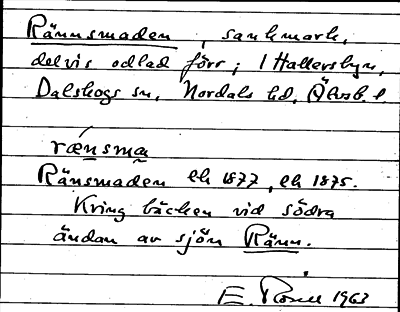 Rännsmaden, sankmark,
delvis odlad förr; I Hallersbyn,
Dalskogs sn, Nordals hd, Älvsb. l.
rænsma
Ränsmaden ek 1877, ek 1875.
Kring bäcken vid södra
ändan av sjön Ränn.
E. 1963